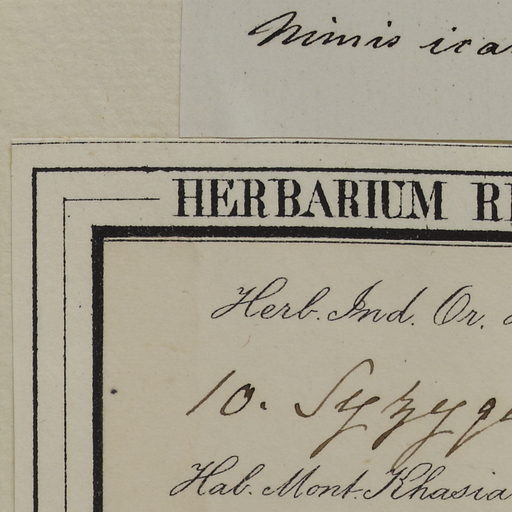 Nimis ica
HERBARIUM R
Herb. Ind. Or.
10. Syzyg
Hab. Mont. Khasia